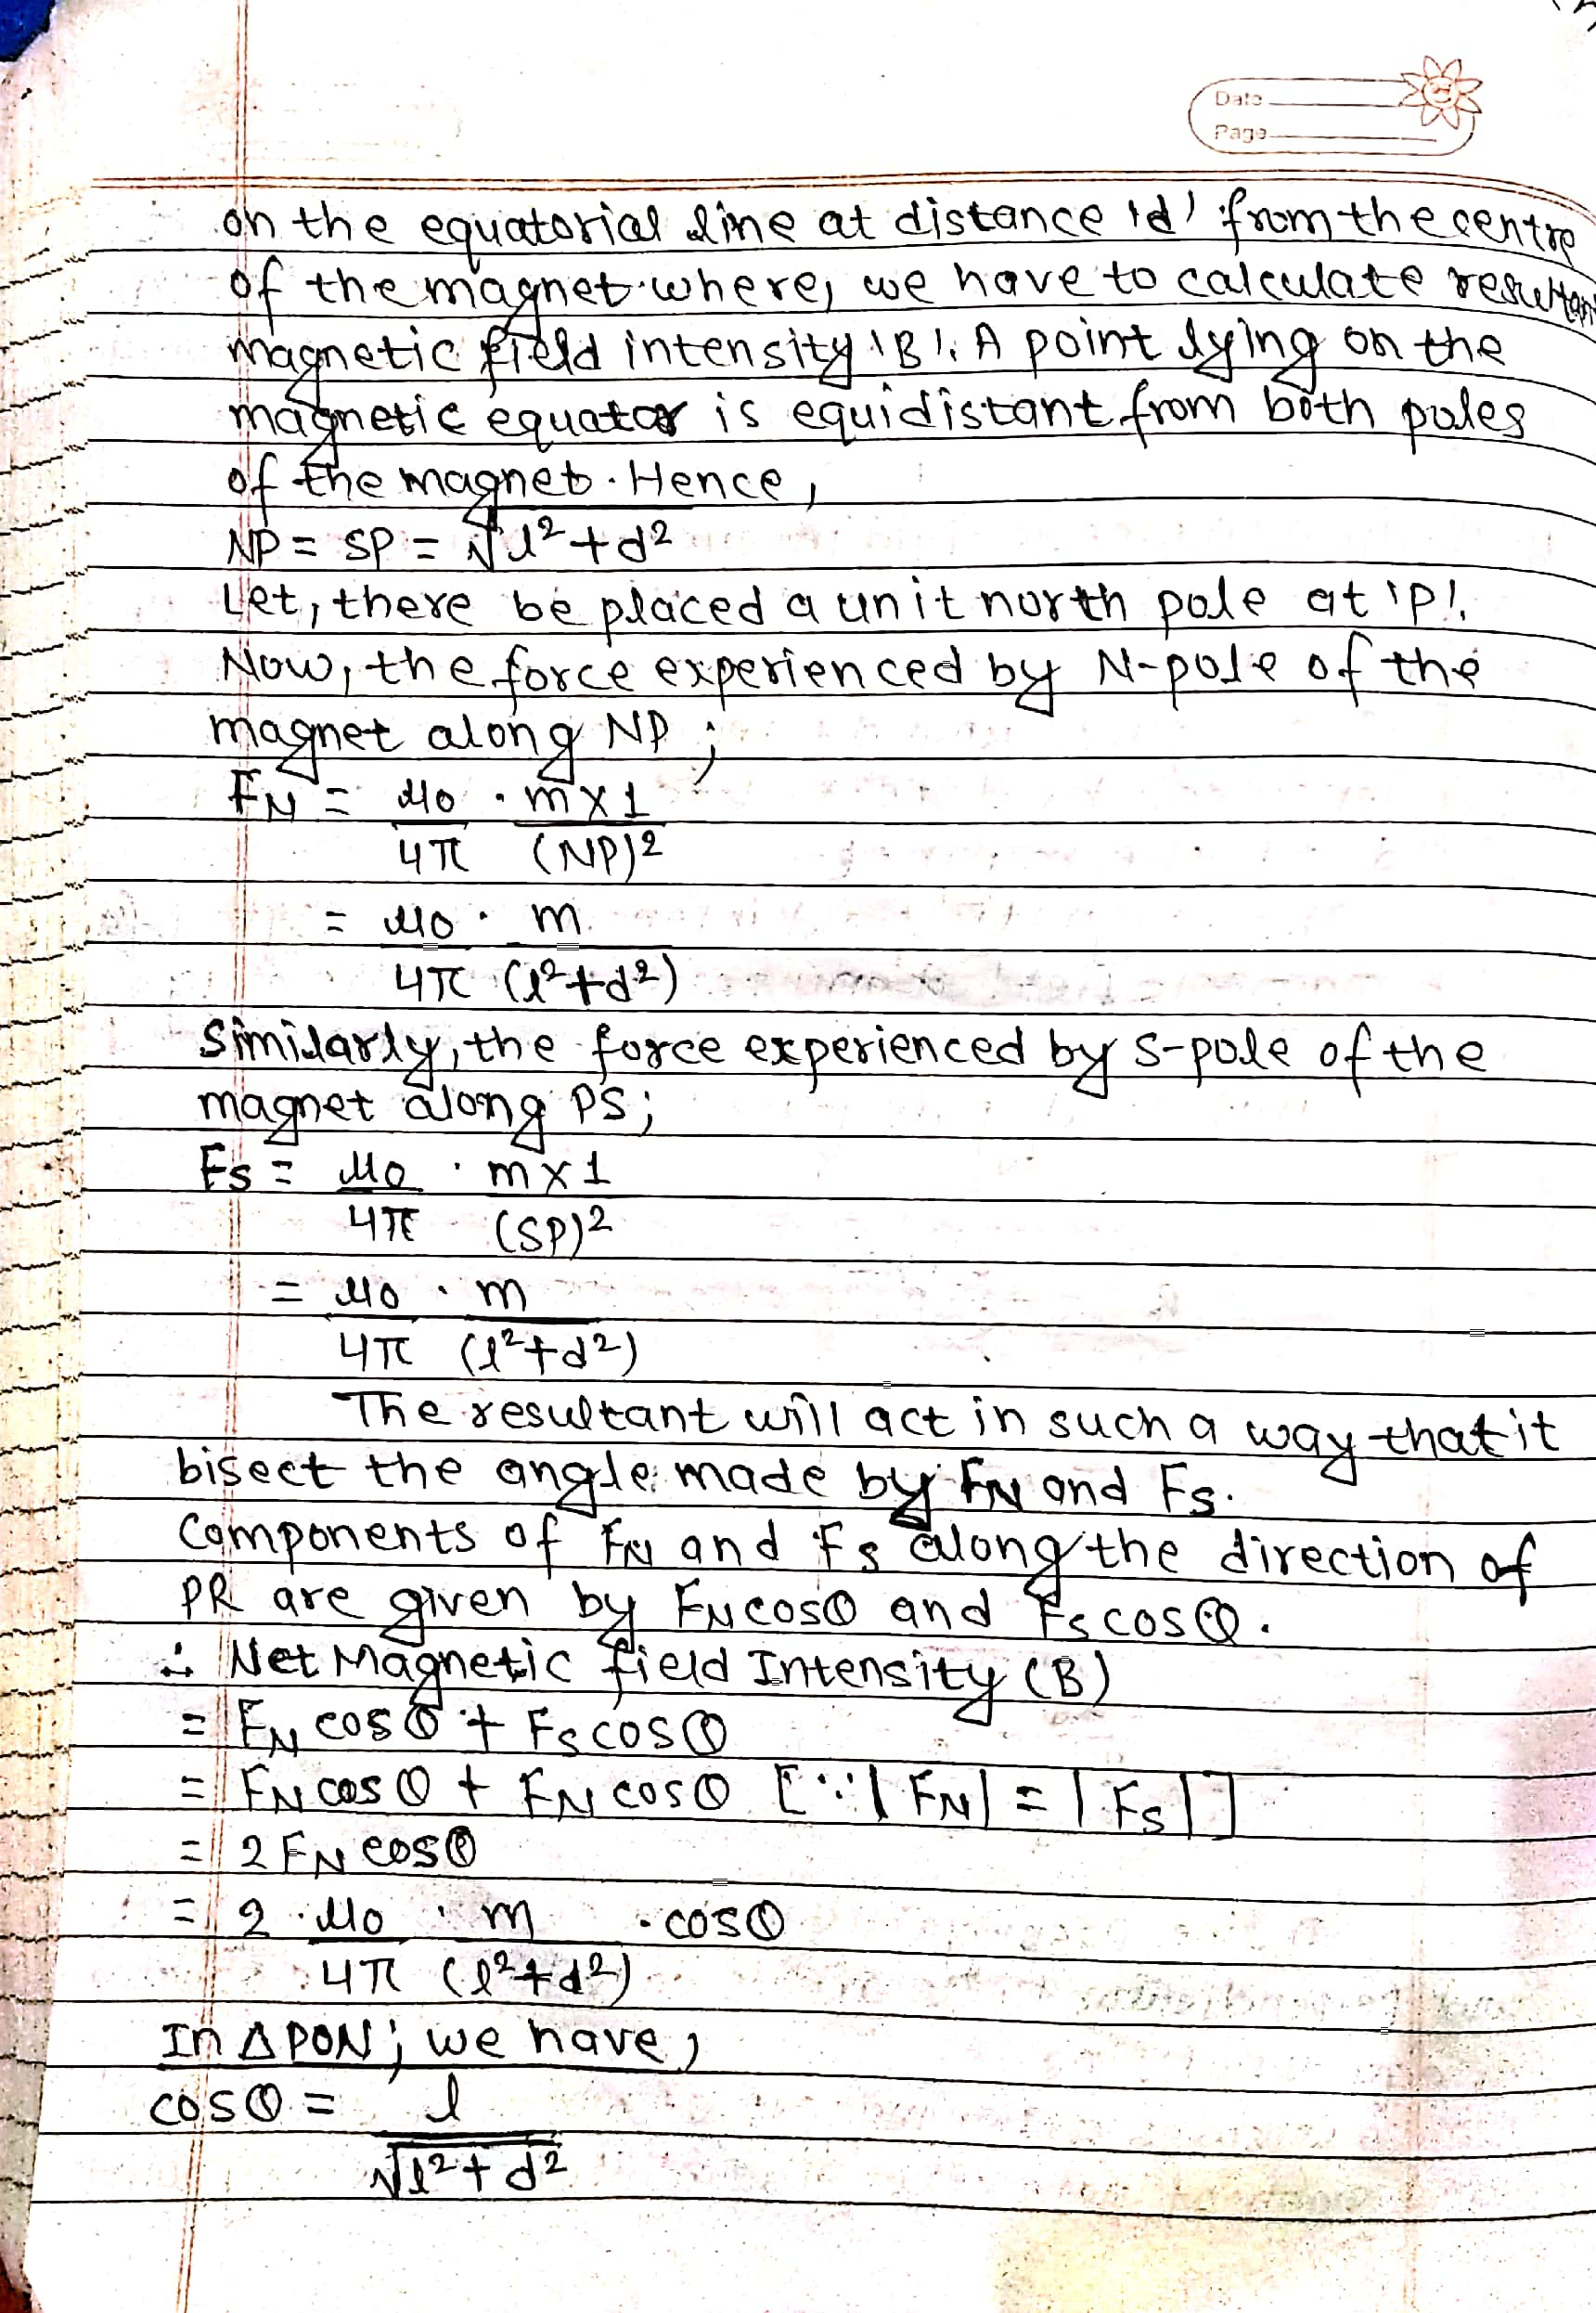 Date
Page
on the equatorial line at distance 'd' from the centre
of the magnet where, we have to calculate resultan
magnetic field intensity 'B'. A point lying on the
magnetic equator is equidistant from both poles
of the magnet. Hence,
NP = SP = √l²+d²
Let, there be placed a unit north pole at 'P'.
Now, the force experienced by N-pole of the
magnet along NP ;
FN = μ0 . m×1
4π (NP)²
= μ0 . m
4π (l²+d²)
Similarly, the force experienced by S-pole of the
magnet along PS;
Fs = μ0 . m×1
4π (SP)²
= μ0 . m
4π (l²+d²)
The resultant will act in such a way that it
bisect the angle made by FN and Fs.
Components of FN and Fs along the direction of
PR are given by FN cosθ and Fs cosθ.
∴ Net Magnetic field Intensity (B)
= FN cosθ + Fs cosθ
= FN cosθ + FN cosθ [∵ |FN| = |Fs|]
= 2 FN cosθ
= 2 . μ0 . m . cosθ
4π (l²+d²)
In Δ PON; we have,
cosθ = l
√l²+d²